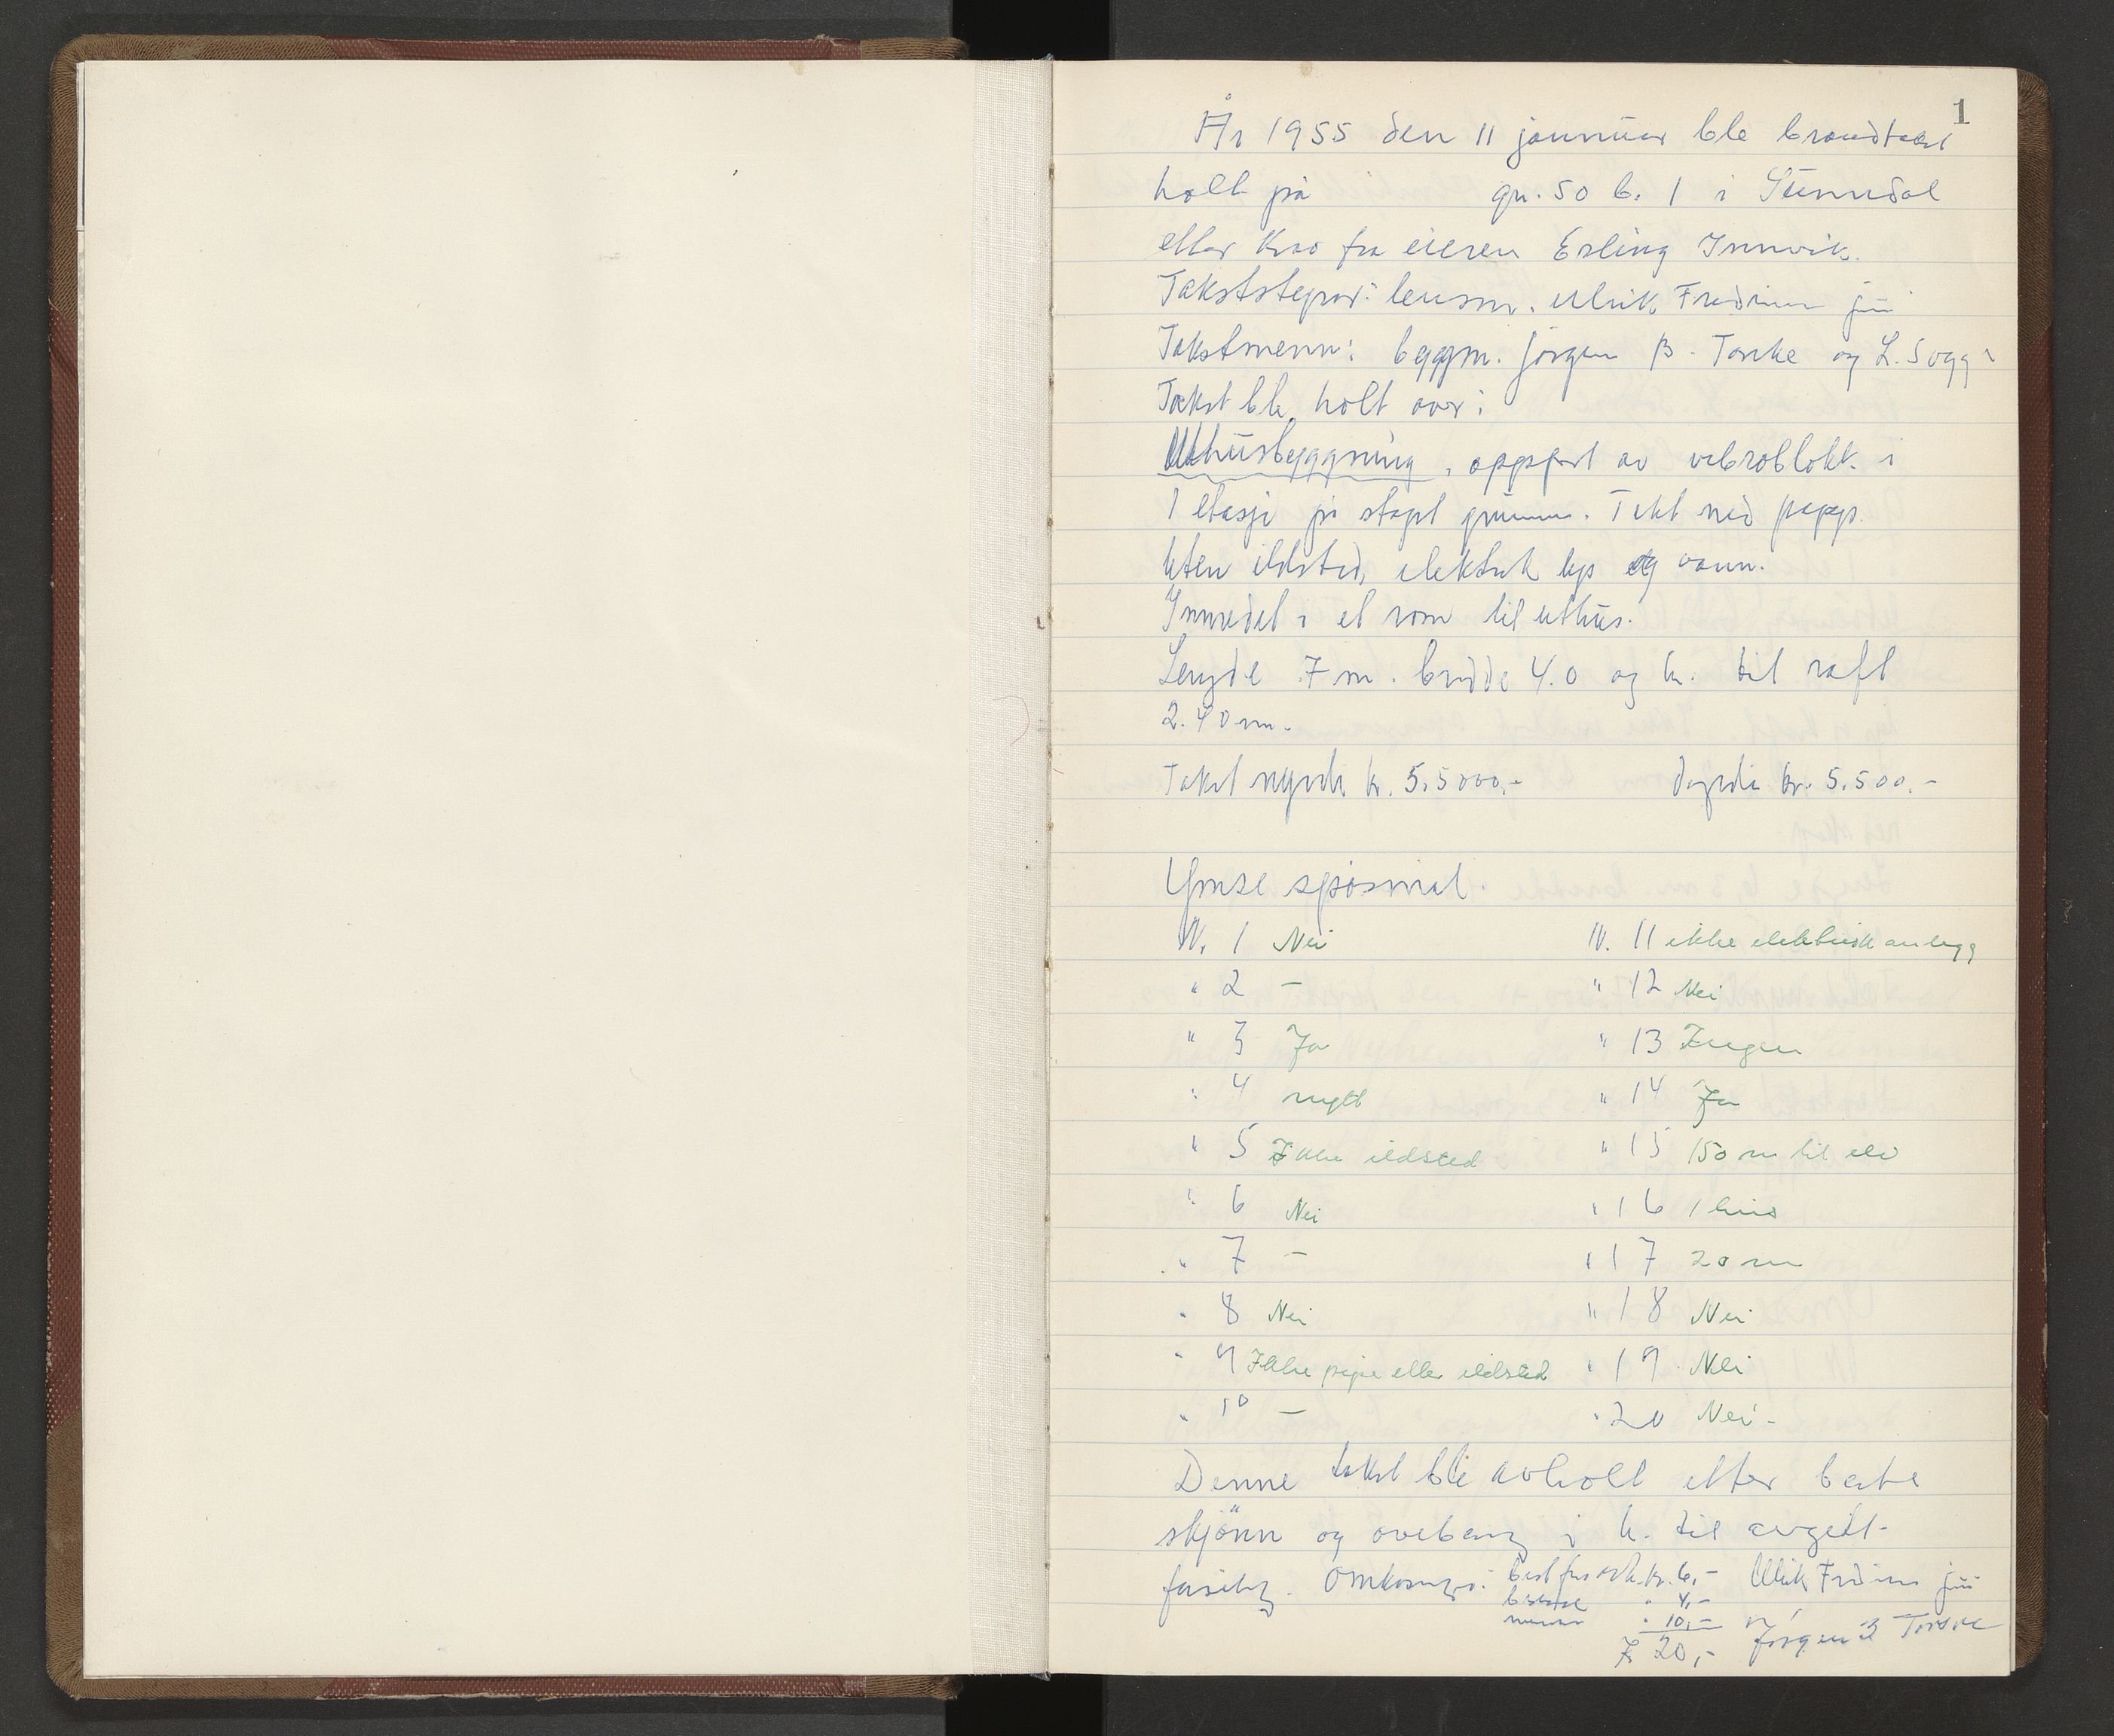 1
År 1955 den 11 januar ble brandtakst
holt på gn. 50 b. 1 i Sunndal
etter krav fra eieren Erling Innvik.
Takststyrar: lensm. Ulrik Fredriksen jun
Takstmenn: byggm. Jørgen B. Torske og L. Sogge
Takst ble holt over:
Uthusbyggning, oppført av vibroblokk i
1 etasje på støpt grunnm. Tekt med papp.
Uten ildsted, elektrisk lys og vann.
Innredet i et rom til uthus.
Lengde 7 m. bredde 4.0 og h. til raft
2.40 m.
Takst nyverdi kr. 5.5000,- dagverdi kr. 5.500,-
Ymse spøsmal.
N. 1 Nei N. 11 ikke elektrisk anlegg
" 2 — " 12 Nei
" 3 Ja " 13 Ingen
" 4 nytt " 14 Ja
" 5 Ikke ildsted " 15 150 m til elv
" 6 Nei " 16 1 hus
" 7 — " 17 20 m
" 8 Nei " 18 Nei
" 9 Ikke pipe eller ildsted " 19 Nei
" 10 — " 20 Nei -
Denne takst ble avholt etter beste
skjönn og i h. til avgitt
Omkostninger: kr. 6,- Ulrik Fredriksen jun
" 4,-
" 10,- Jørgen B Torske
kr 20,-